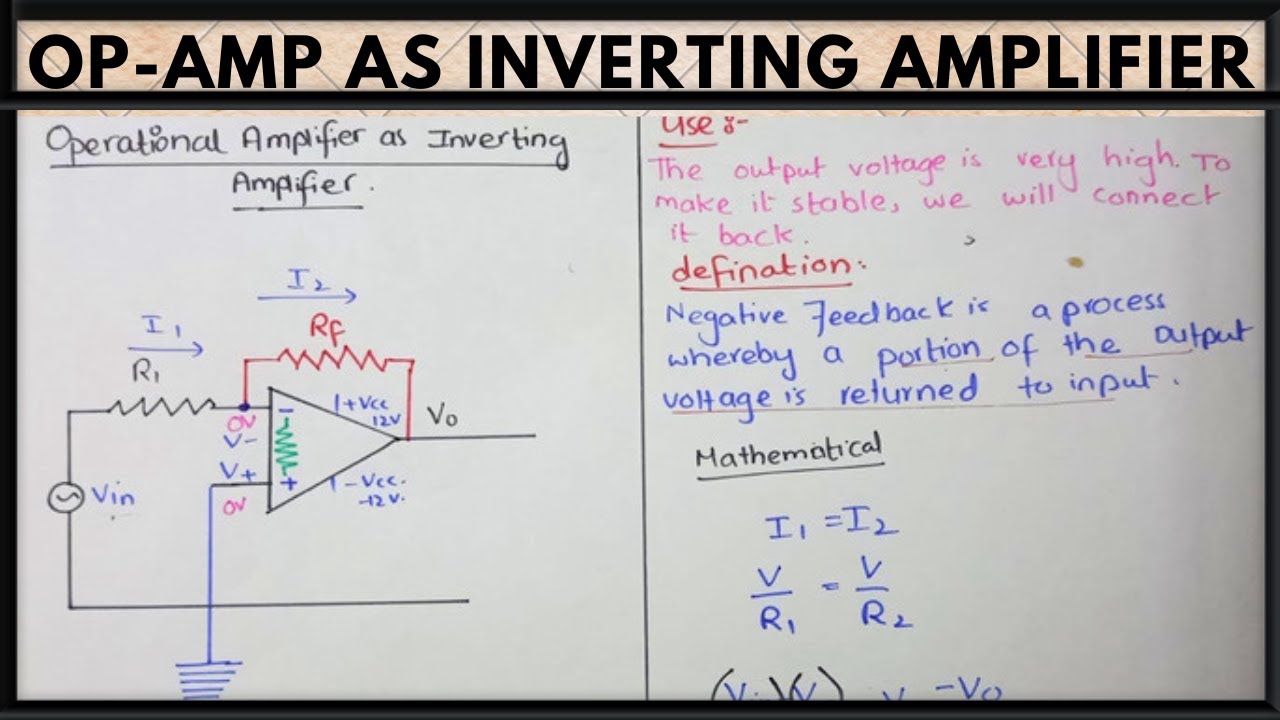 OP-AMP AS INVERTING AMPLIFIER
Operational Amplifier as Inverting
Amplifier.
I2
Rf
I1
R1
1+Vcc
12V
Vo
0V
V-
-
V+
+
0V
1-Vcc.
-12V.
Vin
Use :-
The output voltage is very high. To
make it stable, we will connect
it back.
defination:
Negative Feedback is a process
whereby a portion of the output
voltage is returned to input.
Mathematical
I1 = I2
V/R1 = V/R2
-Vo